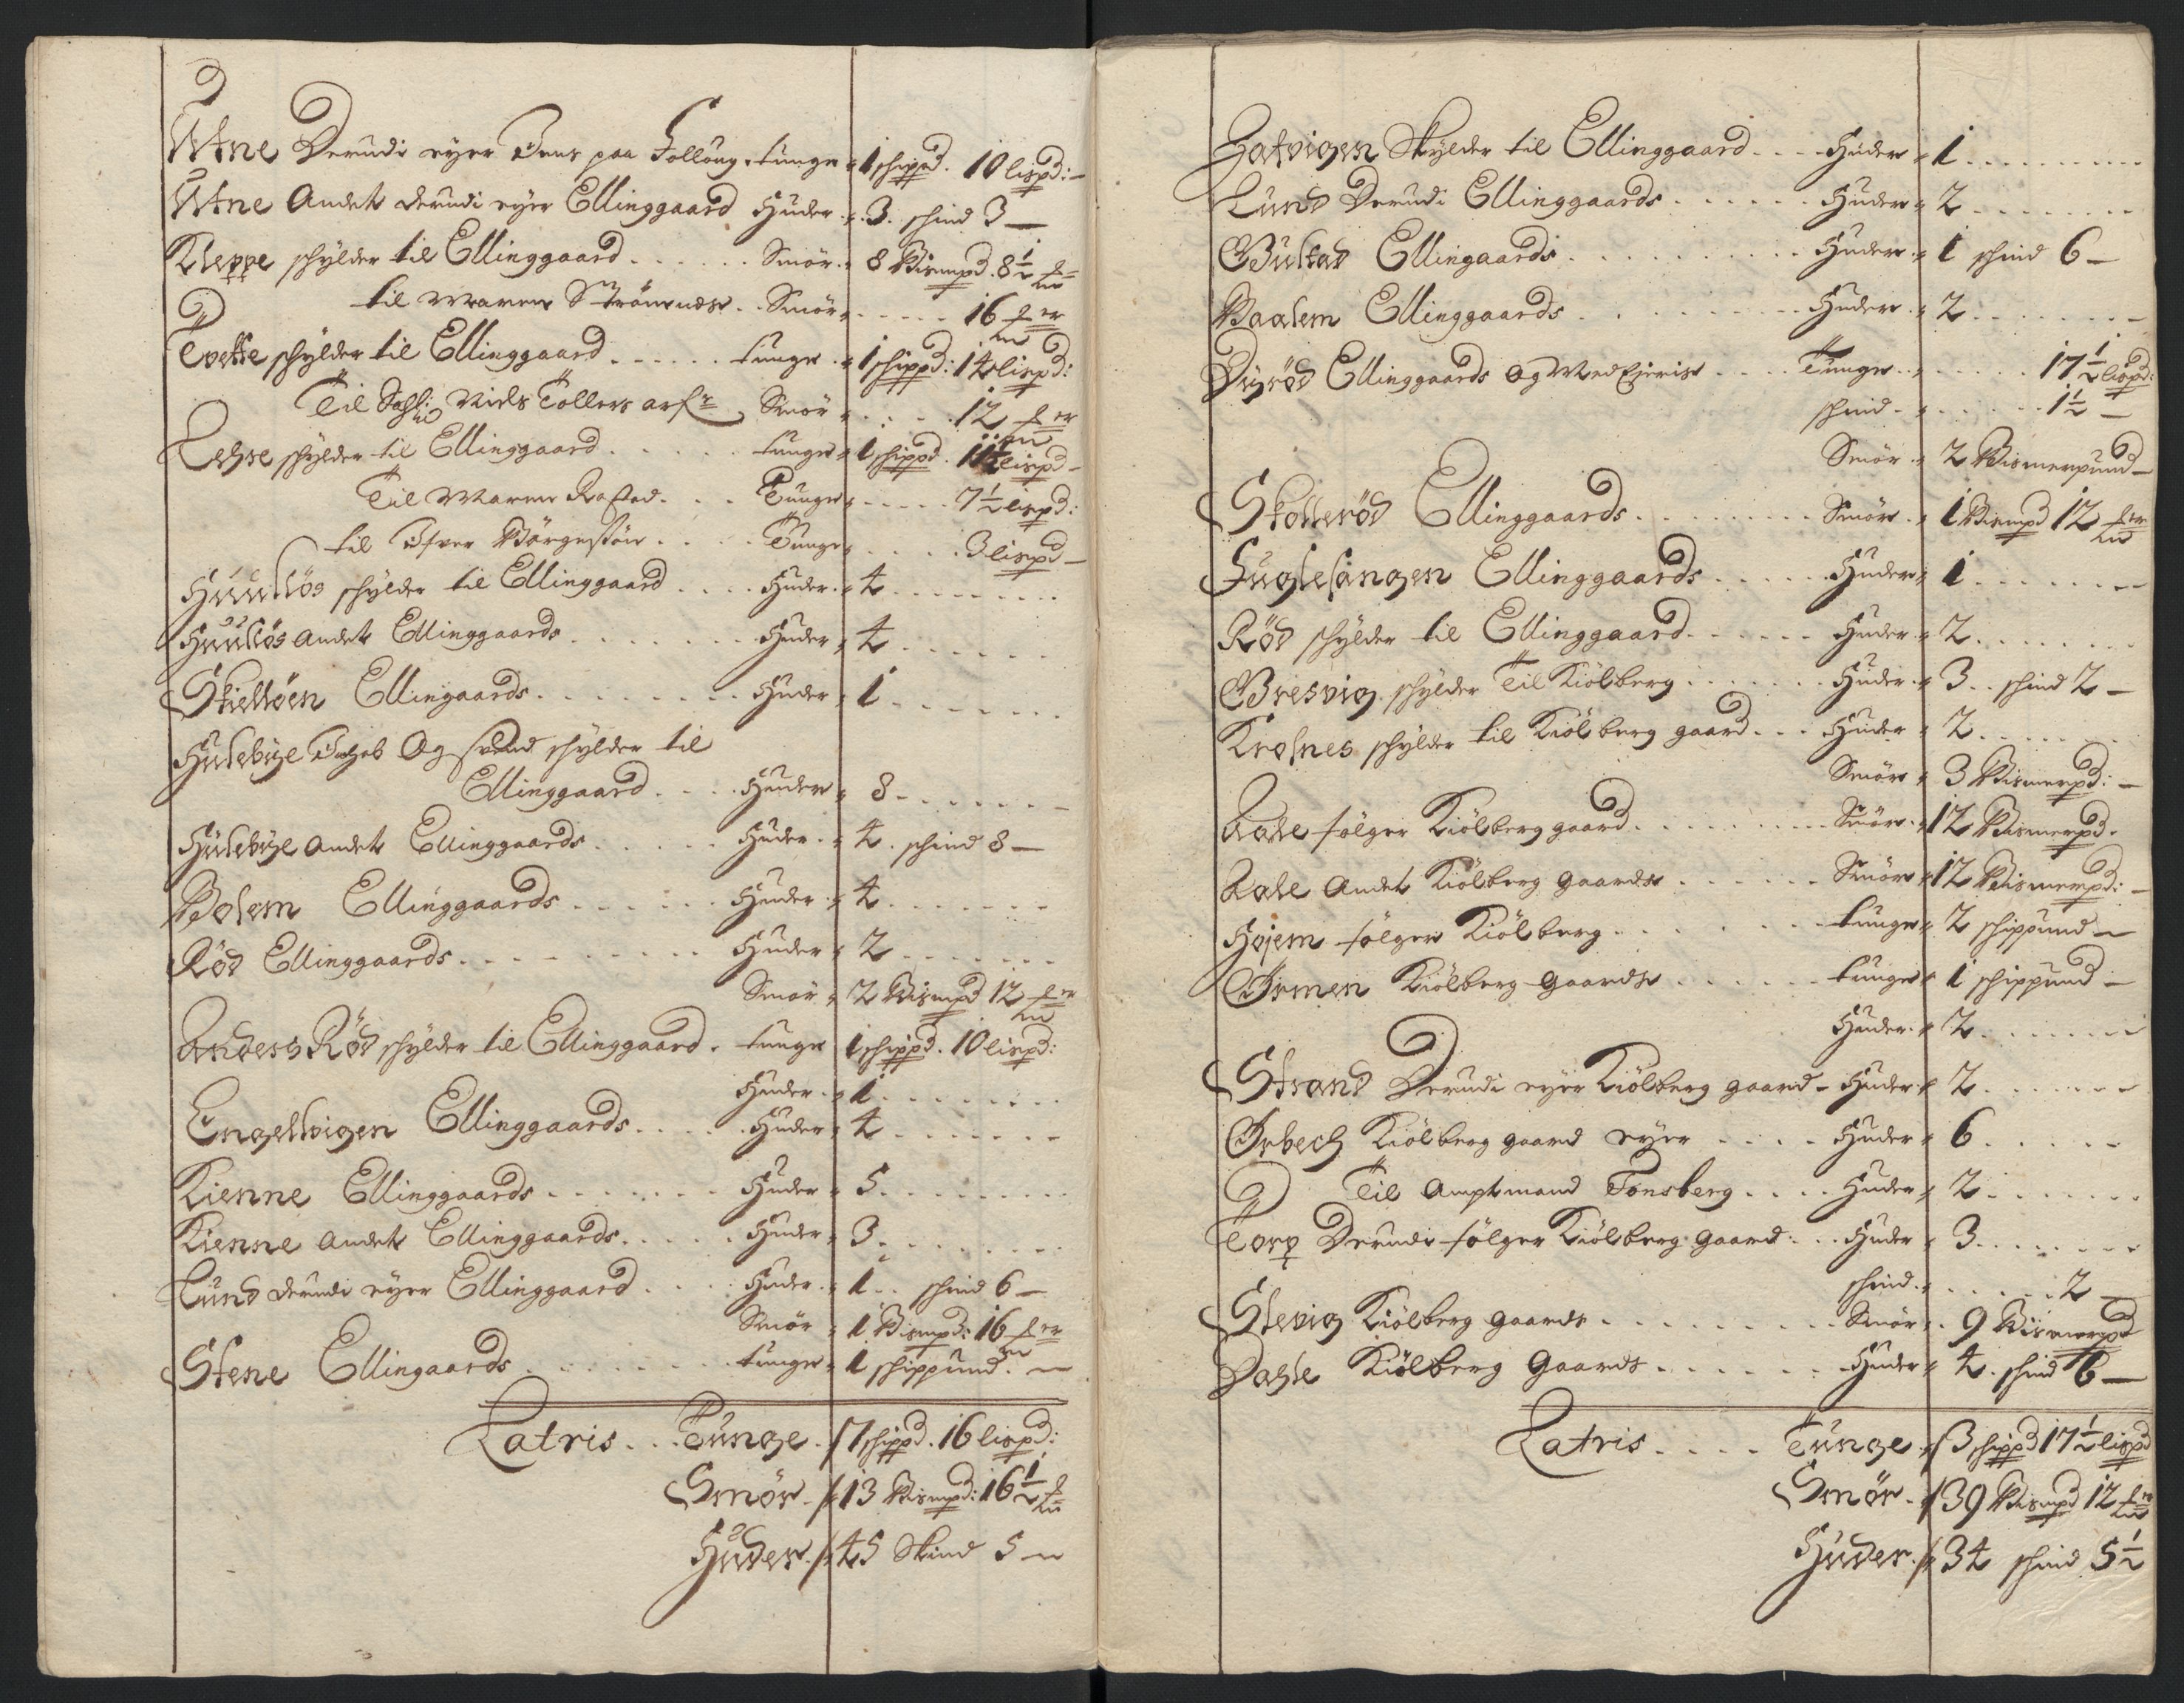 Utne Derudi eyer Jens paa Folloug, tunge 1 schippd. 10 lispd:
Utne Andet derudi eyer Ellinggaard Huder 3. schind 3 —
Kleppe schylder til Ellinggaard Smör 8 Bismpd. 8½
til Maren Smör 16
Tvette schylder til Ellinggaard tunge 1 schippd: 14 lispd:
Til Sahl: Niels Tollers Smör 12
schylder til Ellinggaard tunge 1 schippd. 11½ lispd —
Til Maren Tunge 7½ lispd:
til Tunge 3 lispd —
Huuslös schylder til Ellinggaard Huder 4
Huuslös andet Ellinggaards Huder 4
Skiellöen Ellingaards Huder 1
Hulebye Jahob Og svend schylder til
Ellinggaard Huder 8
Hulebye andet Ellinggaards Huder 4. schind 8 —
Bolem Ellinggaards Huder 4
Röd Ellinggaards Huder 2
Smör 2 Bismpd 12
Anders Röd schylder til Ellinggaard. tunge 1 schippd. 10 lispd:
Huder 1
Engelsvigen Ellinggaards Huder 4
Kienne Ellinggaards Huder 5
Kienne andet Ellinggaards Huder 3
Lund derudi eyer Ellinggaard Huder 1 schind 6 —
Smör 1 Bismpd: 16
Stene Ellingaards tunge 1 schippund. —
Latris Tunge 7 schippd. 16 lispd:
Smör 13 Bismpd: 16½
Huder 45 Skind 5
Skylder til Ellinggaard Huder 1
Lund Derudi Ellinggaards Huder 2
Ellingaards Huder 1 schind 6 —
Baalem Ellinggaards Huder 2
Dyröd Ellinggaards Og MedEjerise Tunge 17½ lispd:
schind 1½ —
Smör 2 Bismerpund —
Skolleröd Ellinggaards Smör 1 Bismpd 12
Fuglesangen Ellinggaards Huder 1
Röd schylder til Ellinggaard Huder 2
Bresvig schylder Til Kiölberg Huder 3 schind 2 —
Krosnes schylder til Kiölberg gaard Huder 2
Smör 3 Bismerpd: —
Aale fölger Kiölberg gaard Smör 12 Bismerpd.
Aale Andet Kiölberg Gaards Smör 12 Bismerpd: —
Hojem fölger Kiölberg tunge 2 schippund —
Ormen Kiölberg Gaards tunge 1 schippund —
Huder 2
Strand Derudi eyer Kiölberg gaard — Huder 2
Orbech Kiölberg gaard eyer Huder 6
Til Amptmand Tonsberg Huder 2
Torp Derudi fölger Kiölberg Gaard Huder 3
schind 2 —
Slevig Kiölberg gaards Smör 9 Bismerpd
Dahle Kiölberg Gaards Huder 4. schind 6 —
Latris Tunge 3 schippd 17½ lispd
Smör 39 Bismpd 12
Huder 34 schind 5½